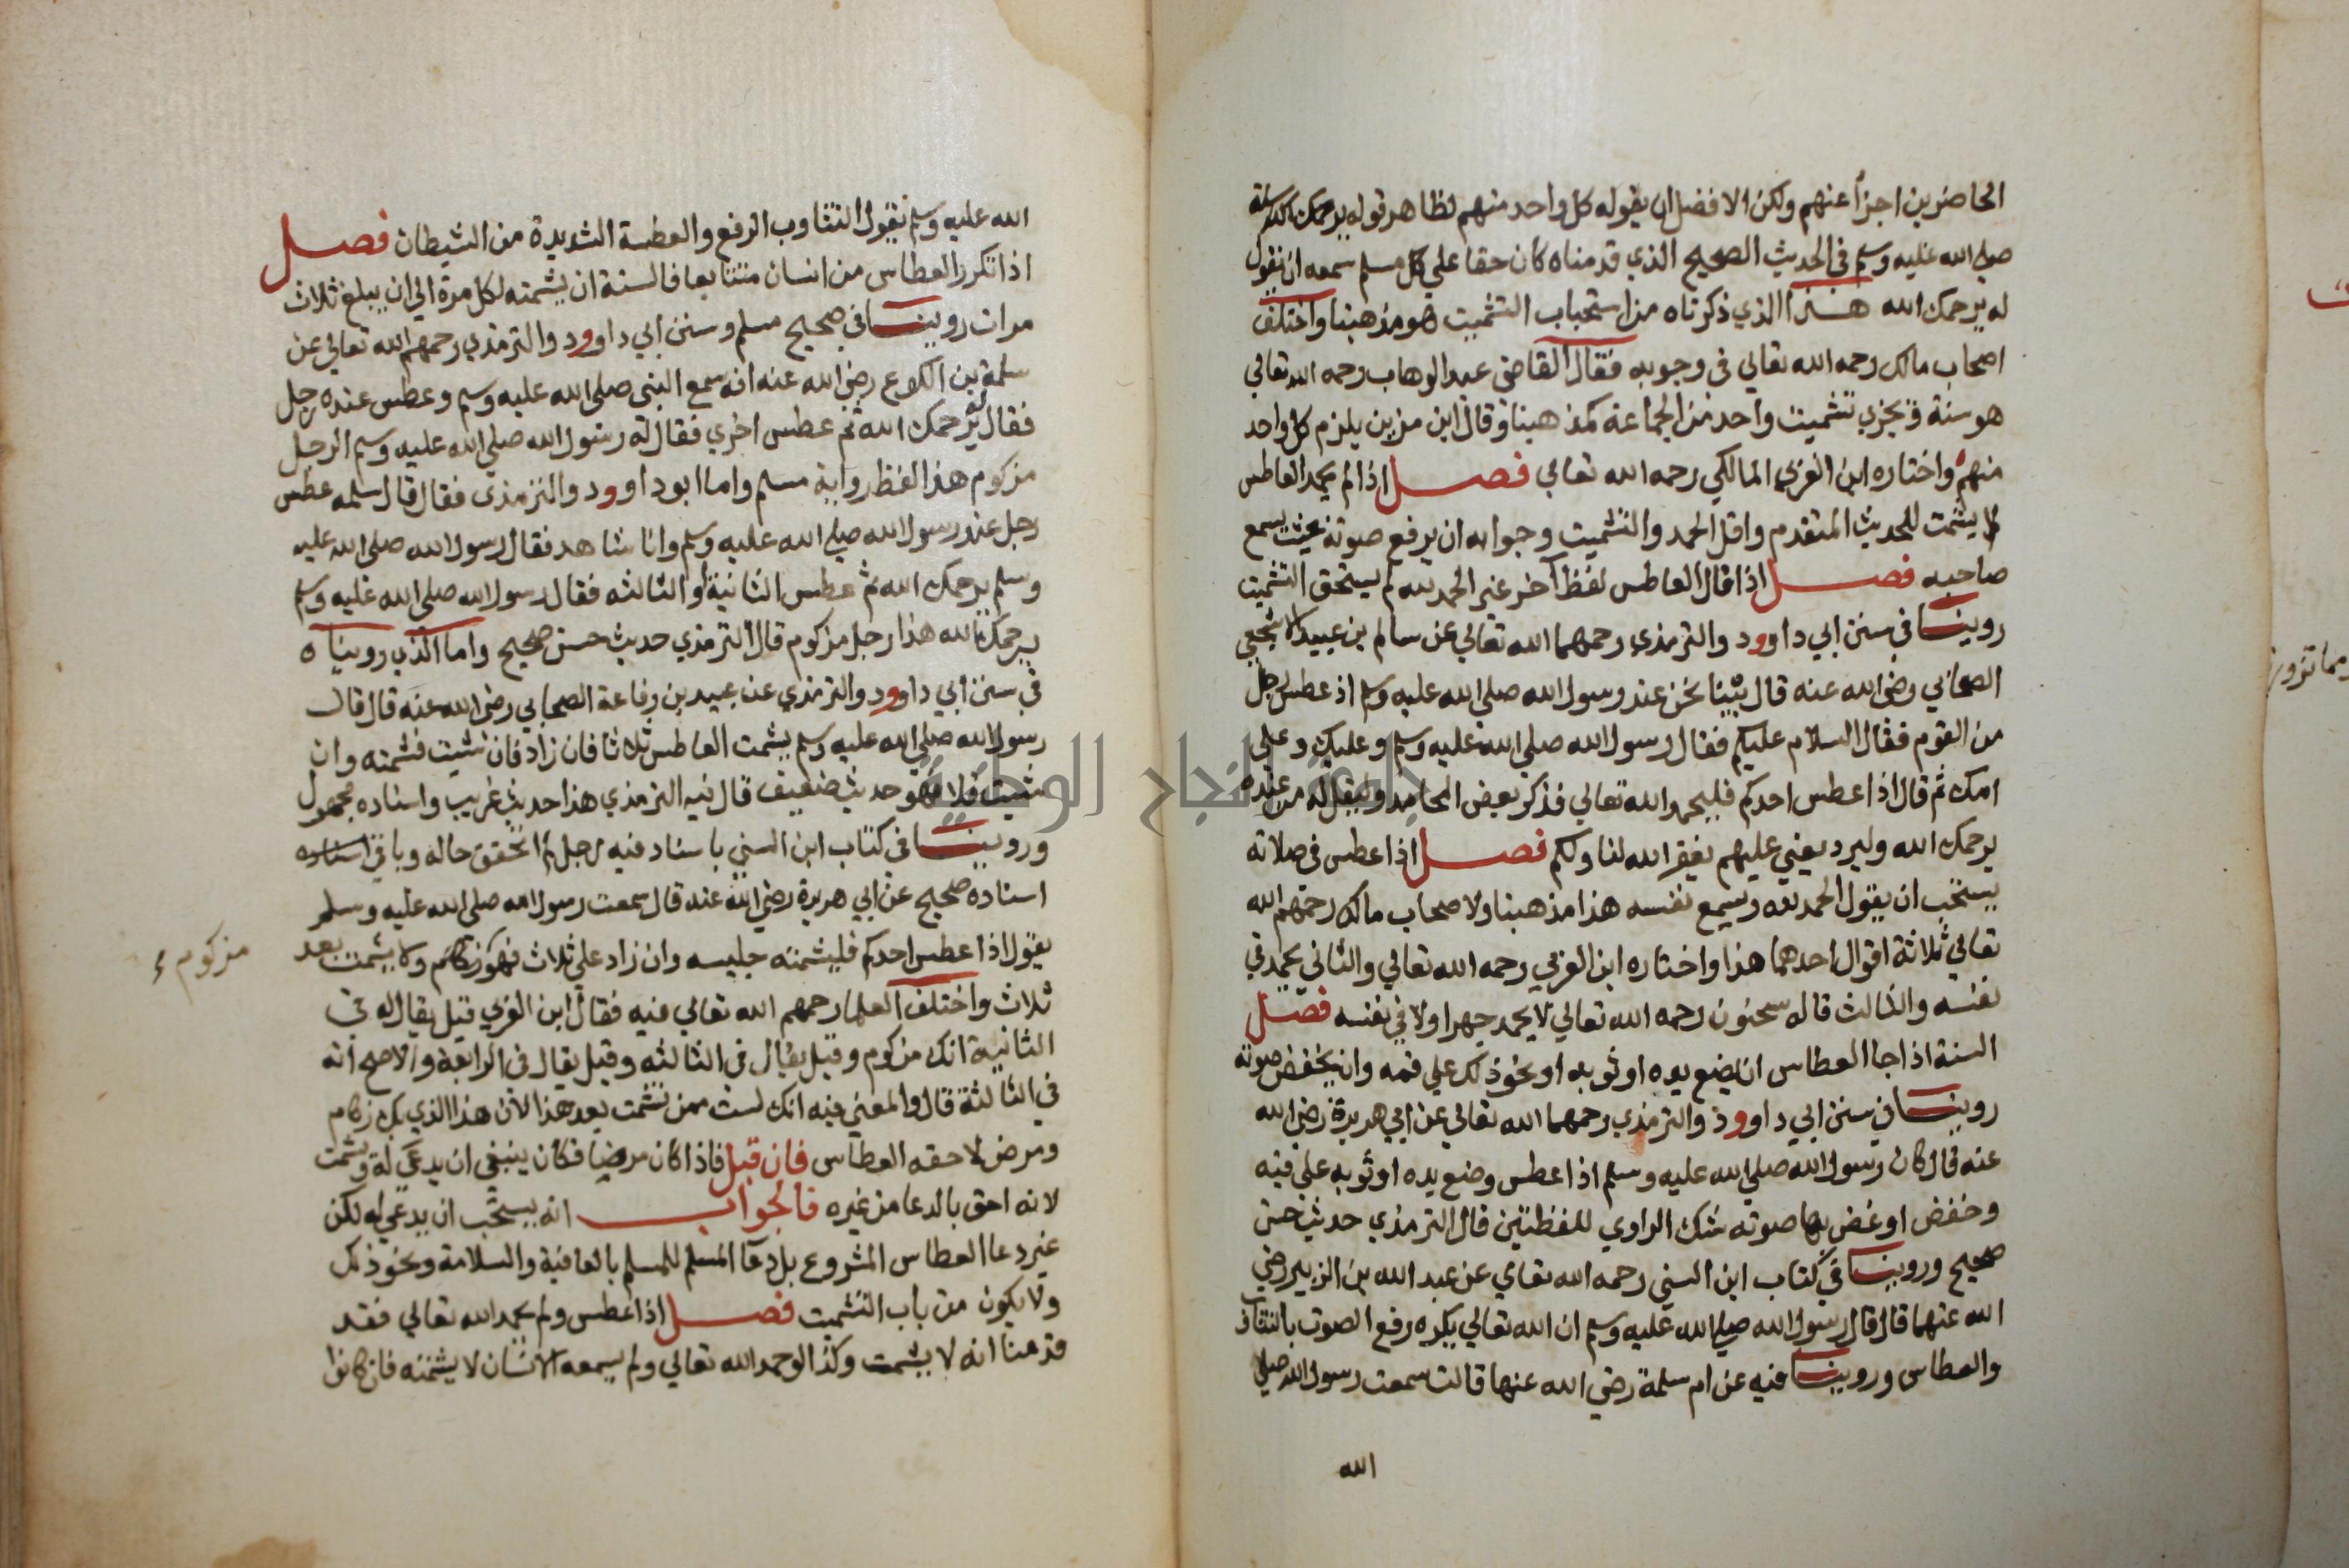 الحاضرين اجزأ عنهم ولكن الافضل ان يقوله كل واحد منهم لظاهر قوله
صلي الله عليه وسلم في الحديث الصحيح الذي قدمناه كان حقا علي كل مسلم سمعه ان يقول
له يرحمك الله هذا الذي ذكرناه من استحباب التشميت هو مذهبنا واختلف
اصحاب مالك رحمه الله تعالي في وجوبه فقال القاضي عبد الوهاب رحمه الله تعالي
هو سنة ويجزي تشميت واحد من الجماعة كمذهبنا وقال ابن مزين يلزم كل واحد
منهم واختاره ابن العربي المالكي رحمه الله تعالي فصل اذا لم يحمد العاطس
لا يشمت للحديث المتقدم واقل الحمد والتشميت وجوابه ان يرفع صوته بحيث يسمع
صاحبه فصل اذا قال العاطس لفظا آخر غير الحمد لله لم يستحق التشميت
روينا في سنن ابي داوود والترمذي رحمهما الله تعالي عن سالم بن عبيد الاشجعي
الصحابي رضي الله عنه قال بينا نحن عند رسول الله صلي الله عليه وسلم اذ عطس رجل
من القوم فقال السلام عليكم فقال رسول الله صلي الله عليه وسلم وعليك وعلي
امك ثم قال اذا عطس احدكم فليحمد الله تعالي فذكر بعض المحامد وليقل له من عنده
يرحمك الله وليرد يعني عليهم يغفر الله لنا ولكم فصل اذا عطس في صلاته
يستحب ان يقول الحمد لله ويسمع نفسه هذا مذهبنا ولاصحاب مالك رحمهم الله
تعالي ثلاثة اقوال احدهما هذا واختاره ابن العربي رحمه الله تعالي والثاني يحمد في
نفسه والثالث قاله سحنون رحمه الله تعالي لا يحمد جهرا ولا في نفسه فصل
السنة اذا جا العطاس ان يضع يده او ثوبه او نحو ذلك علي فمه وان يخفض صوته
روينا في سنن ابي داوود والترمذي رحمهما الله تعالي عن ابي هريرة رضي الله
عنه قال كان رسول الله صلي الله عليه وسلم اذا عطس وضع يده او ثوبه علي فيه
وخفض او غض بها صوته شك الراوي للفظتين قال الترمذي حديث حسن
صحيح وروينا في كتاب ابن السني رحمه الله تعالي عن عبد الله بن الزبير رضي
الله عنهما قال قال رسول الله صلي الله عليه وسلم ان الله تعالي يكره رفع الصوت بالتثاؤب
والعطاس وروينا فيه عن ام سلمة رضي الله عنها قالت سمعت رسول الله صلي
الله
الله عليه وسلم يقول التثاوب الرفع والعطسة الشديدة من الشيطان فصل
اذا تكرر العطاس من انسان متتابعا فالسنة ان يشمته لكل مرة الي ان يبلغ ثلاث
مرات روينا في صحيح مسلم وسنن ابي داوود والترمذي رحمهم الله تعالي عن
سلمة بن الاكوع رضي الله عنه انه سمع النبي صلي الله عليه وسلم وعطس عنده رجل
فقال له يرحمك الله ثم عطس اخري فقال له رسول الله صلي الله عليه وسلم الرجل
مزكوم هذا لفظ رواية مسلم واما ابو داوود والترمذي فقال قال سلمه عطس
رجل عند رسول الله صلي الله عليه وسلم وانا شاهد فقال رسول الله صلي الله عليه
وسلم يرحمك الله ثم عطس الثانية او الثالثه فقال رسول الله صلي الله عليه وسلم
يرحمك الله هذا رجل مزكوم قال الترمذي حديث حسن صحيح واما الذي رويناه
في سنن ابي داوود والترمذي عن عبيد بن رفاعة الصحابي رضي الله عنه قال قال
رسول الله صلي الله عليه وسلم يشمت العاطس ثلاثا فان زاد فان شيت فشمته وان
شيت فلا فهو حديث ضعيف قال فيه الترمذي هذا حديث غريب واسناده مجهول
وروينا في كتاب ابن السني باسناد فيه رجل لم اتحقق حاله وباقي اسناده
اسناده صحيح عن ابي هريرة رضي الله عنه قال سمعت رسول الله صلي الله عليه وسلم
يقول اذا عطس احدكم فليشمته جليسه وان زاد علي ثلاث فهو ولا يشمت بعد
مزكوم
ثلاث واختلف العلما رحمهم الله تعالي فيه فقال ابن العربي قيل يقال له في
الثانية انك مزكوم وقيل يقال في الثالثه وقيل يقال في الرابعة والاصح انه
في الثالثة قال والمعني فيه انك لست ممن تشمت بعد هذا لان هذا الذي بك زكام
ومرض لا حقه العطاس فان قيل فاذا كان مريضا فكان ينبغي ان يدعي له ويشمت
لانه احق بالدعا من غيره فالجواب انه يستحب ان يدعي له لكن
غير دعا العطاس المشروع بل دعآ المسلم للمسلم بالعافية والسلامة ونحو ذلك
ولا يكون من باب التشميت فصل اذا عطس ولم يحمد الله تعالي فقد
قدمنا انه لا يشمت وكذا لو حمد الله تعالي ولم يسمعه الانسان لا يشمته فان كانوا